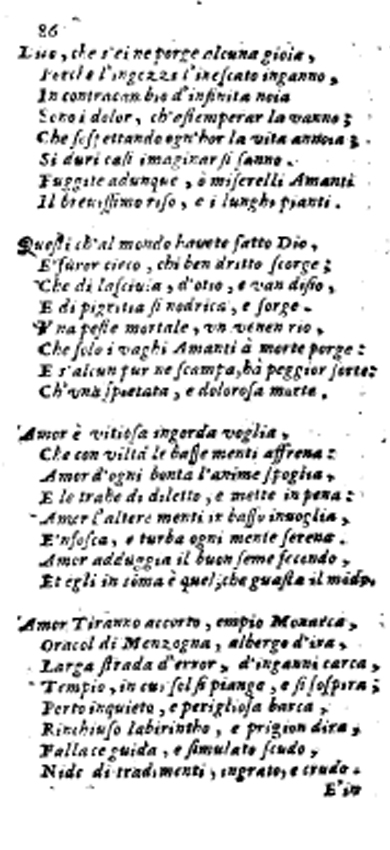 86
che s'ei ne porge alcuna gioia,
Perche l'ingozzi l'inescato inganno,
In contracambio d'infinita noia
Sono i dolor, ch'ostemperar la vanno;
Che sospettando ogn'hor la vita annoia;
Si duri casi imaginar si fanno.
Fuggite adunque, ò miserelli Amanti
Il brevissimo riso, e i lunghi pianti.
Questi ch'al mondo havete fatto Dio,
E' furor cieco, chi ben dritto scorge;
Che di lascivia, d'otio, e van disio,
E di pigritia si nodrica, e sorge.
Vna peste mortale, vn venen rio,
Che solo i vaghi Amanti à morte porge:
E s'alcun pur ne scampa, hà peggior sorte:
Ch'vnà spietata, e dolorosa morte.
Amor è vitiosa ingorda voglia,
Che con viltà le basse menti affrena:
Amor d'ogni bontà l'anime spoglia,
E le trahe di diletto, e mette in pena:
Amor l'altere menti in basso inuoglia,
E'nfosca, e turba ogni mente serena.
Amor adduggia il buon seme fecondo,
Et egli in sõma è quel, che guasta il mõdo.
Amor Tiranno accorto, empio Monarca,
Oracol di Menzogna, albergo d'ira,
Larga strada d'error, d'inganni carca,
Tempio, in cui sol si piange, e si sospira;
Porto inquieto, e perigliosa barca,
Rinchiuso labirintho, e prigion dira,
Fallace guida, e simulato scudo,
Nido di tradimenti, ingrato, e crudo.
E'in